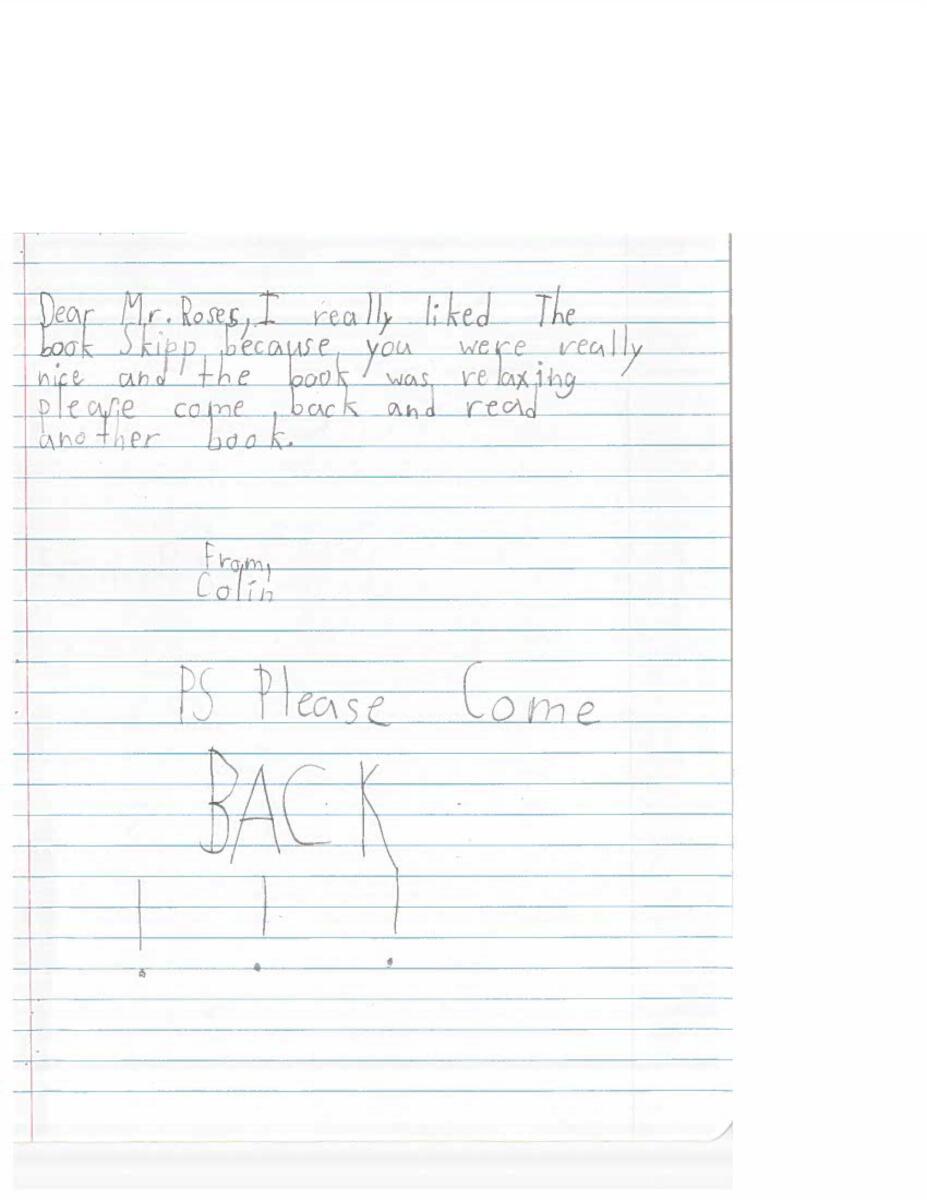 Dear Mr. Roses, I really liked The
book Skipp, because, you were really
nice and the book was relaxing
please come back and read
another book.
From,
Colin
PS Please Come
BACK
! ! !